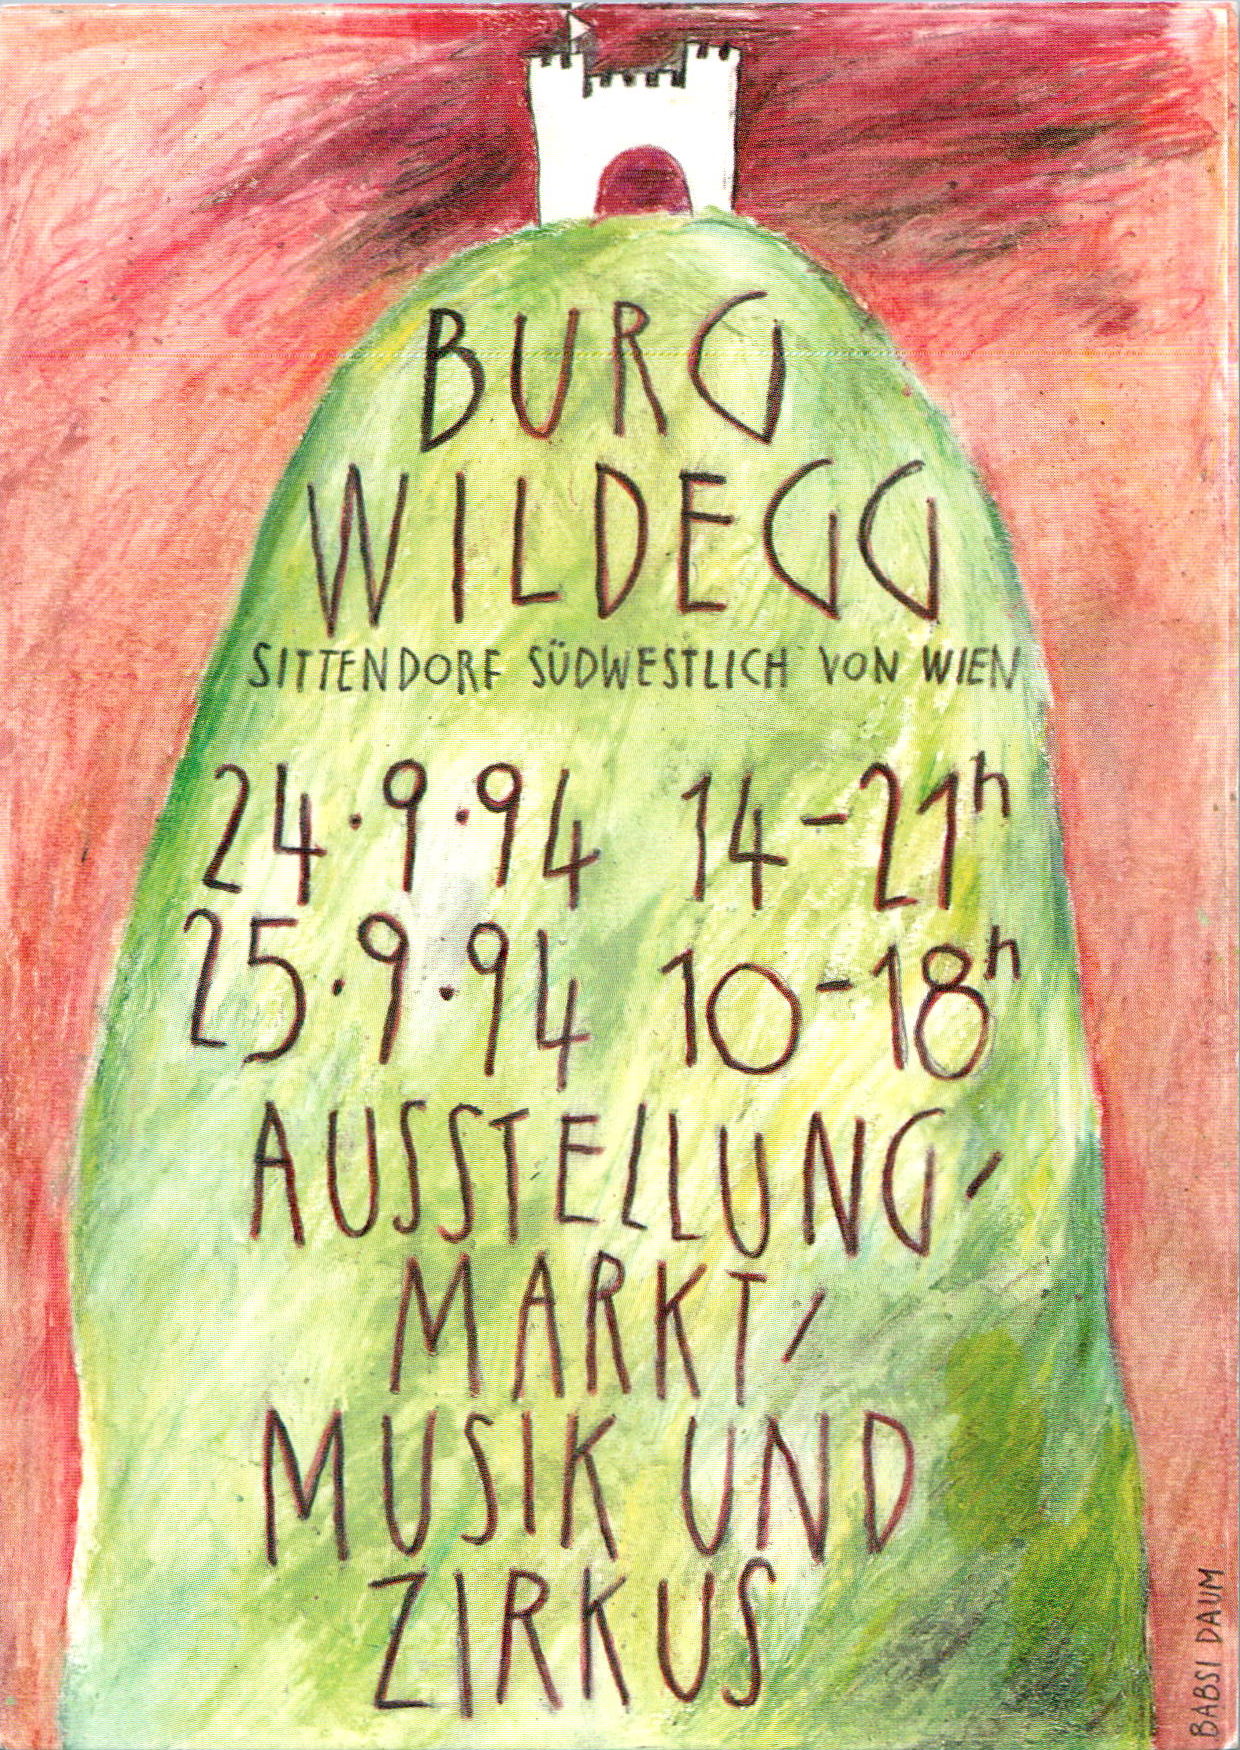 BURG
WILDEGG
SITTENDORF SÜDWESTLICH VON WIEN
24.9.94 14-21h
25.9.94 10-18h
AUSSTELLUNG,
MARKT,
MUSIK UND
ZIRKUS
BABSI DAUM